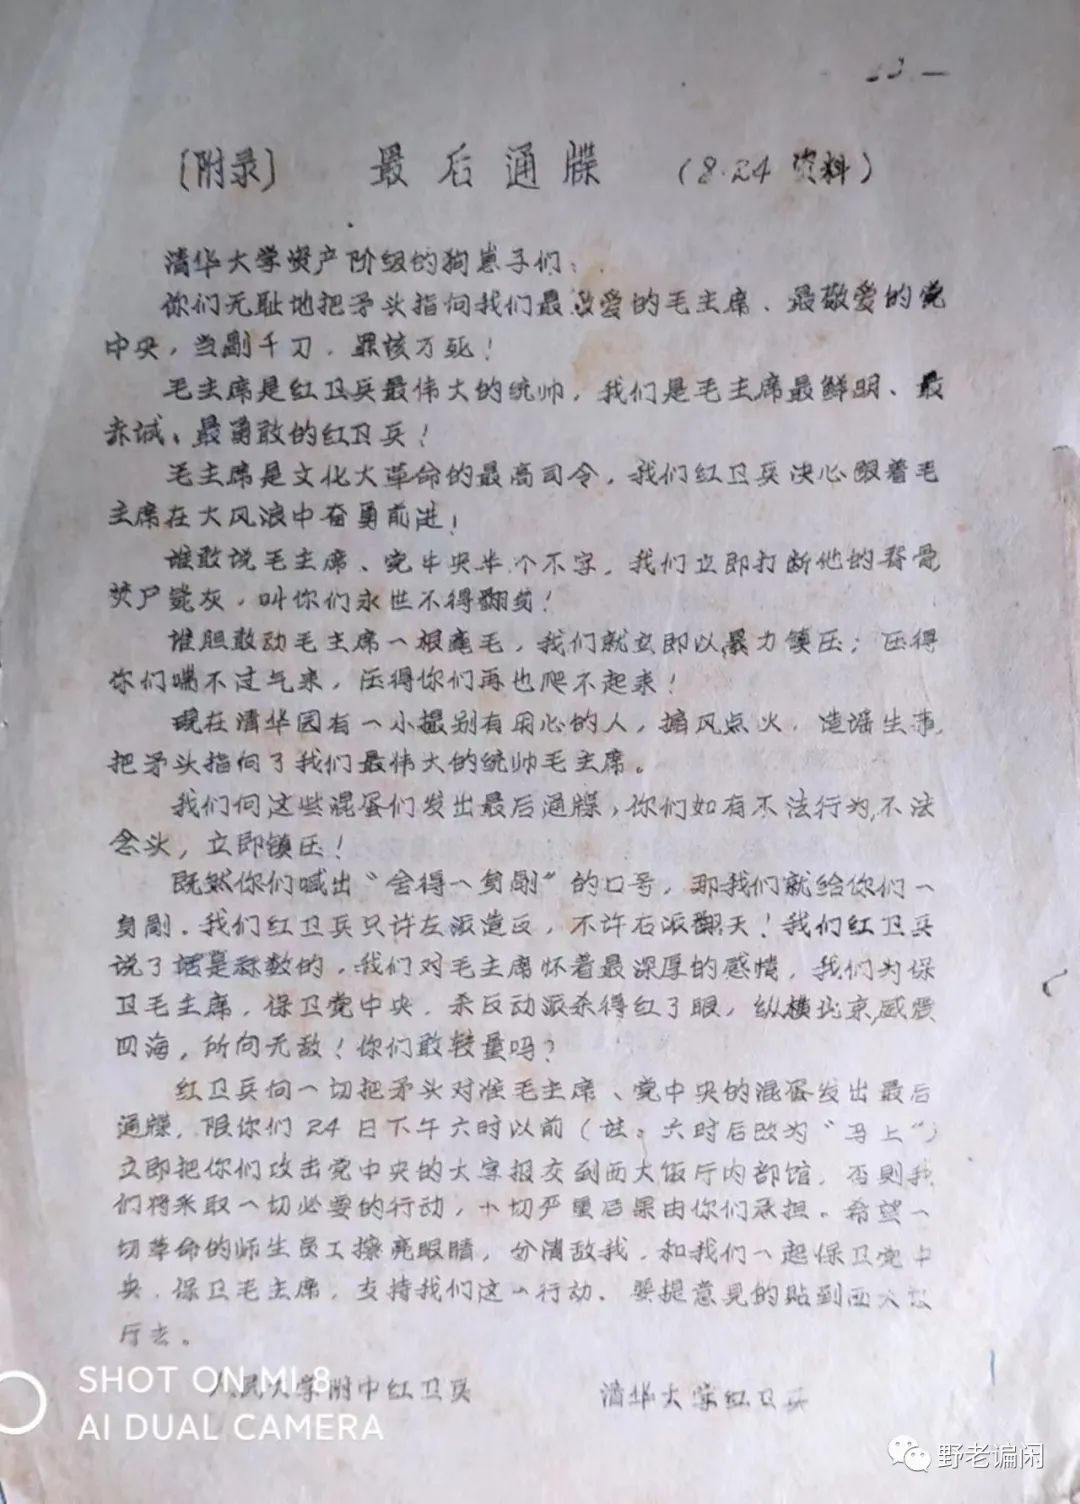 〔附录〕 最后通牒 (8.24资料)
清华大学资产阶级的狗崽子们:
你们无耻地把矛头指向我们最敬爱的毛主席、最敬爱的党
中央,当剐千刀,罪该万死!
毛主席是红卫兵最伟大的统帅,我们是毛主席最鲜明、最
赤诚、最勇敢的红卫兵!
毛主席是文化大革命的最高司令,我们红卫兵决心跟着毛
主席在大风浪中奋勇前进!
谁敢说毛主席、党中央半个不字,我们立即打断他的脊骨
焚尸毙灰,叫你们永世不得翻身!
谁胆敢动毛主席一根毫毛,我们就立即以暴力镇压;压得
你们喘不过气来,压得你们再也爬不起来!
现在清华园有一小撮别有用心的人,搧风点火,造谣生事,
把矛头指向了我们最伟大的统帅毛主席。
我们向这些混蛋们发出最后通牒,你们如有不法行为,不法
念头,立即镇压!
既然你们喊出“舍得一身剐”的口号,那我们就给你们一
身剐。我们红卫兵只许左派造反,不许右派翻天!我们红卫兵
说了话是称数的,我们对毛主席怀着最深厚的感情,我们为保
卫毛主席,保卫党中央,杀反动派杀得红了眼,纵横北京,威震
四海,所向无敌!你们敢较量吗?
红卫兵向一切把矛头对准毛主席、党中央的混蛋发出最后
通牒,限你们24日下午六时以前(注。六时后改为“马上”)
立即把你们攻击党中央的大字报交到西大饭厅内部馆,否则我
们将采取一切必要的行动,一切严重后果由你们承担。希望一
切革命的师生员工擦亮眼睛,分清敌我,和我们一起保卫党中
央,保卫毛主席,支持我们这一行动、要提意见的贴到西大饭
厅去。
人民大学附中红卫兵 清华大学红卫兵
SHOT ON MI 8
AI DUAL CAMERA
野老谝闲